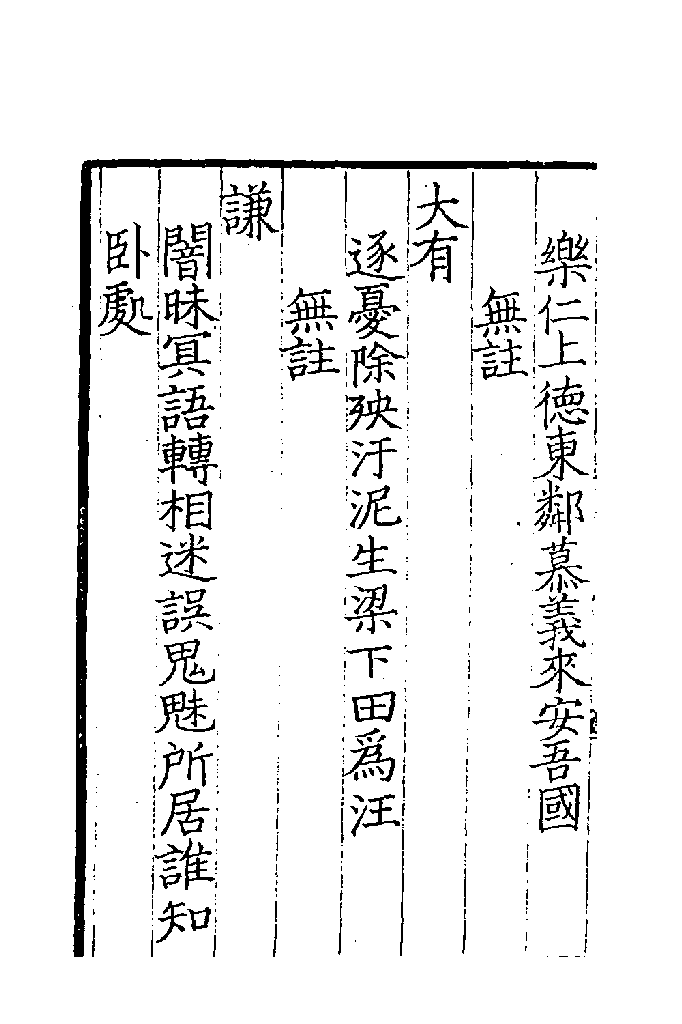 樂仁上德東鄰慕義來安吾國
無註
大有
逐憂除殃汙泥生梁下田為汪
無註
謙
闇昧冥語轉相迷誤鬼魅所居誰知
卧處